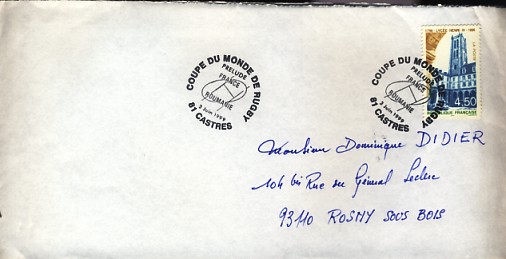 COUPE DU MONDE DE RUGBY
PRELUDE
FRANCE
ROUMANIE
3 Juin 1999
81 CASTRES
COUPE DU MONDE DE RUGBY
PRELUDE
FRANCE
ROUMANIE
3 Juin 1999
81 CASTRES
LYCÉE HENRI IV
4,50
REPUBLIQUE FRANCAISE
Monsieur Dominique DIDIER
104 bis Rue du Général Leclerc
93110 ROSNY SOUS BOIS